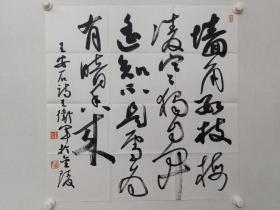 墙角数枝梅
凌寒独自开
遥知不是雪为
有暗香来
王安石诗王衛军於金陵